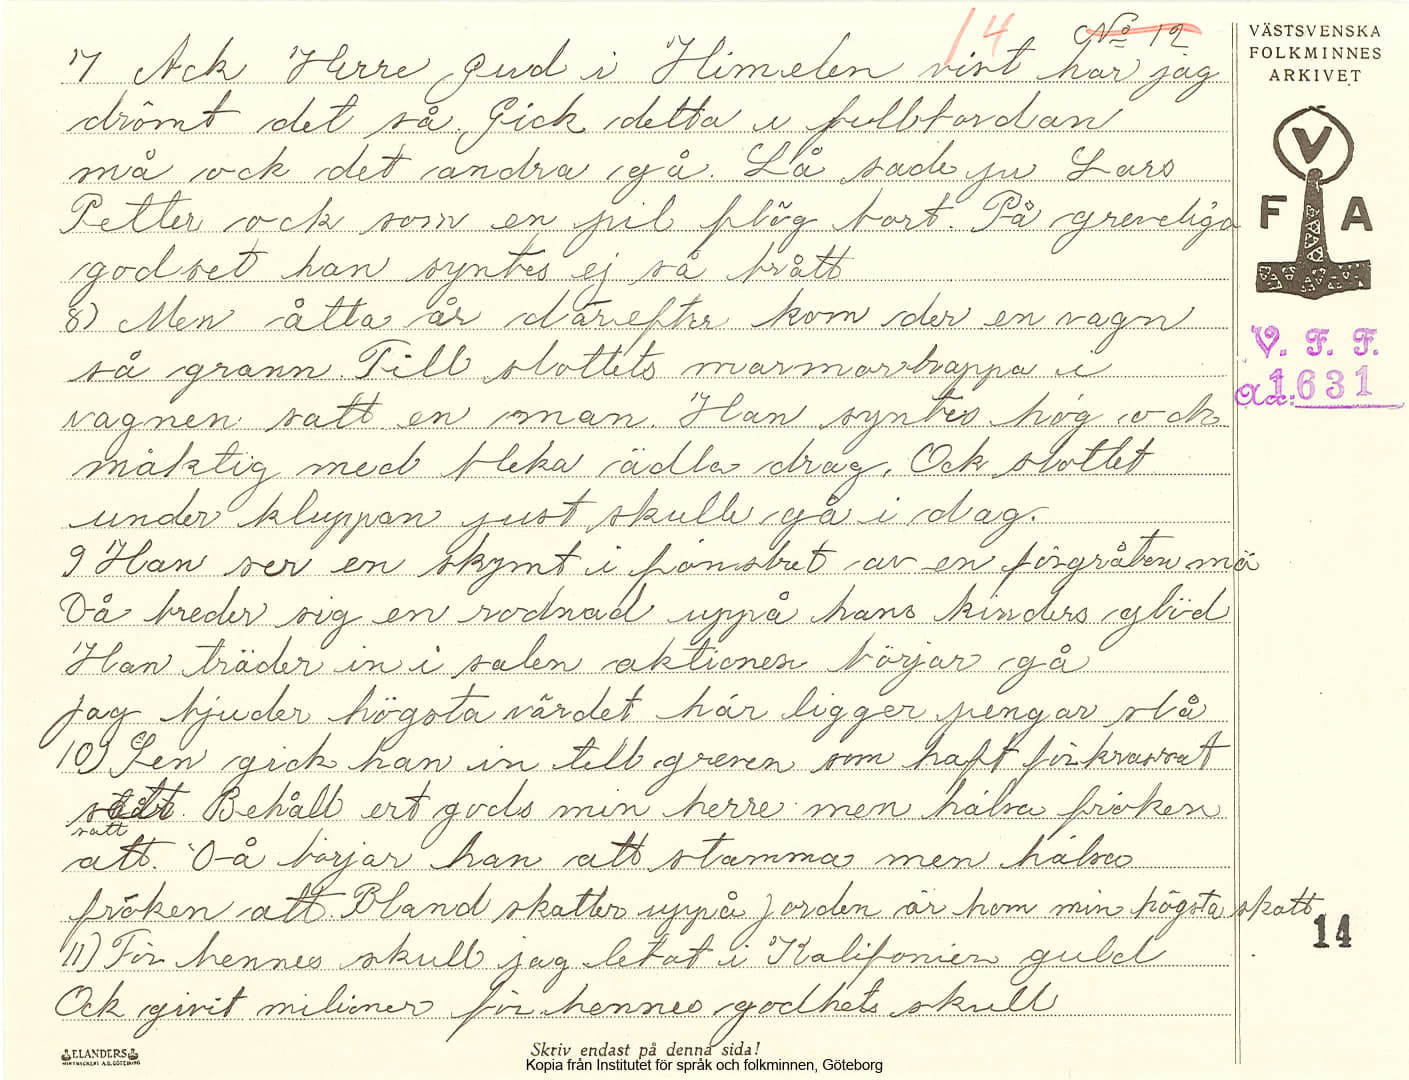 14
No 12
VÄSTSVENSKA
FOLKMINNES
ARKIVET
V
F A
V. F. F.
Acc: 1631
7 Ack Herre Gud i Himelen vist har jag
drömt det så. Gick detta i fullbordan
må ock det andra gå. Så sade ju Lars
Petter ock som en pil flög bort. På grevliga
godset han syntes ej så brått
8) Men åtta år därefter kom der en vagn
så grann. Till slottets marmortrappa i
vagnen satt en man. Han syntes hög ock
mäktig med bleka ädla drag. Ock slottet
under kluppan just skulle gå i dag.
9 Han ser en skymt i fönstret av en förgråten mö
Då breder sig en rodnad uppå hans kinders glöd
Han träder in i salen aktionen börjar gå
jag bjuder högsta värdet här ligger pengar slå
10) Sen gick han in till greven som haft förkrossat
satt
Behåll ert gods min herre men hälsa fröken
att. Då börjar han att stamma men hälsa
fröken att. Bland skatter uppå jorden är hon min högsta skatt
11) För hennes skull jag letat i Kalifonien guld
Ock givit milioner för hennes godhets skull
14
ELANDERS
Skriv endast på denna sida!
Kopia från Institutet för språk och folkminnen, Göteborg